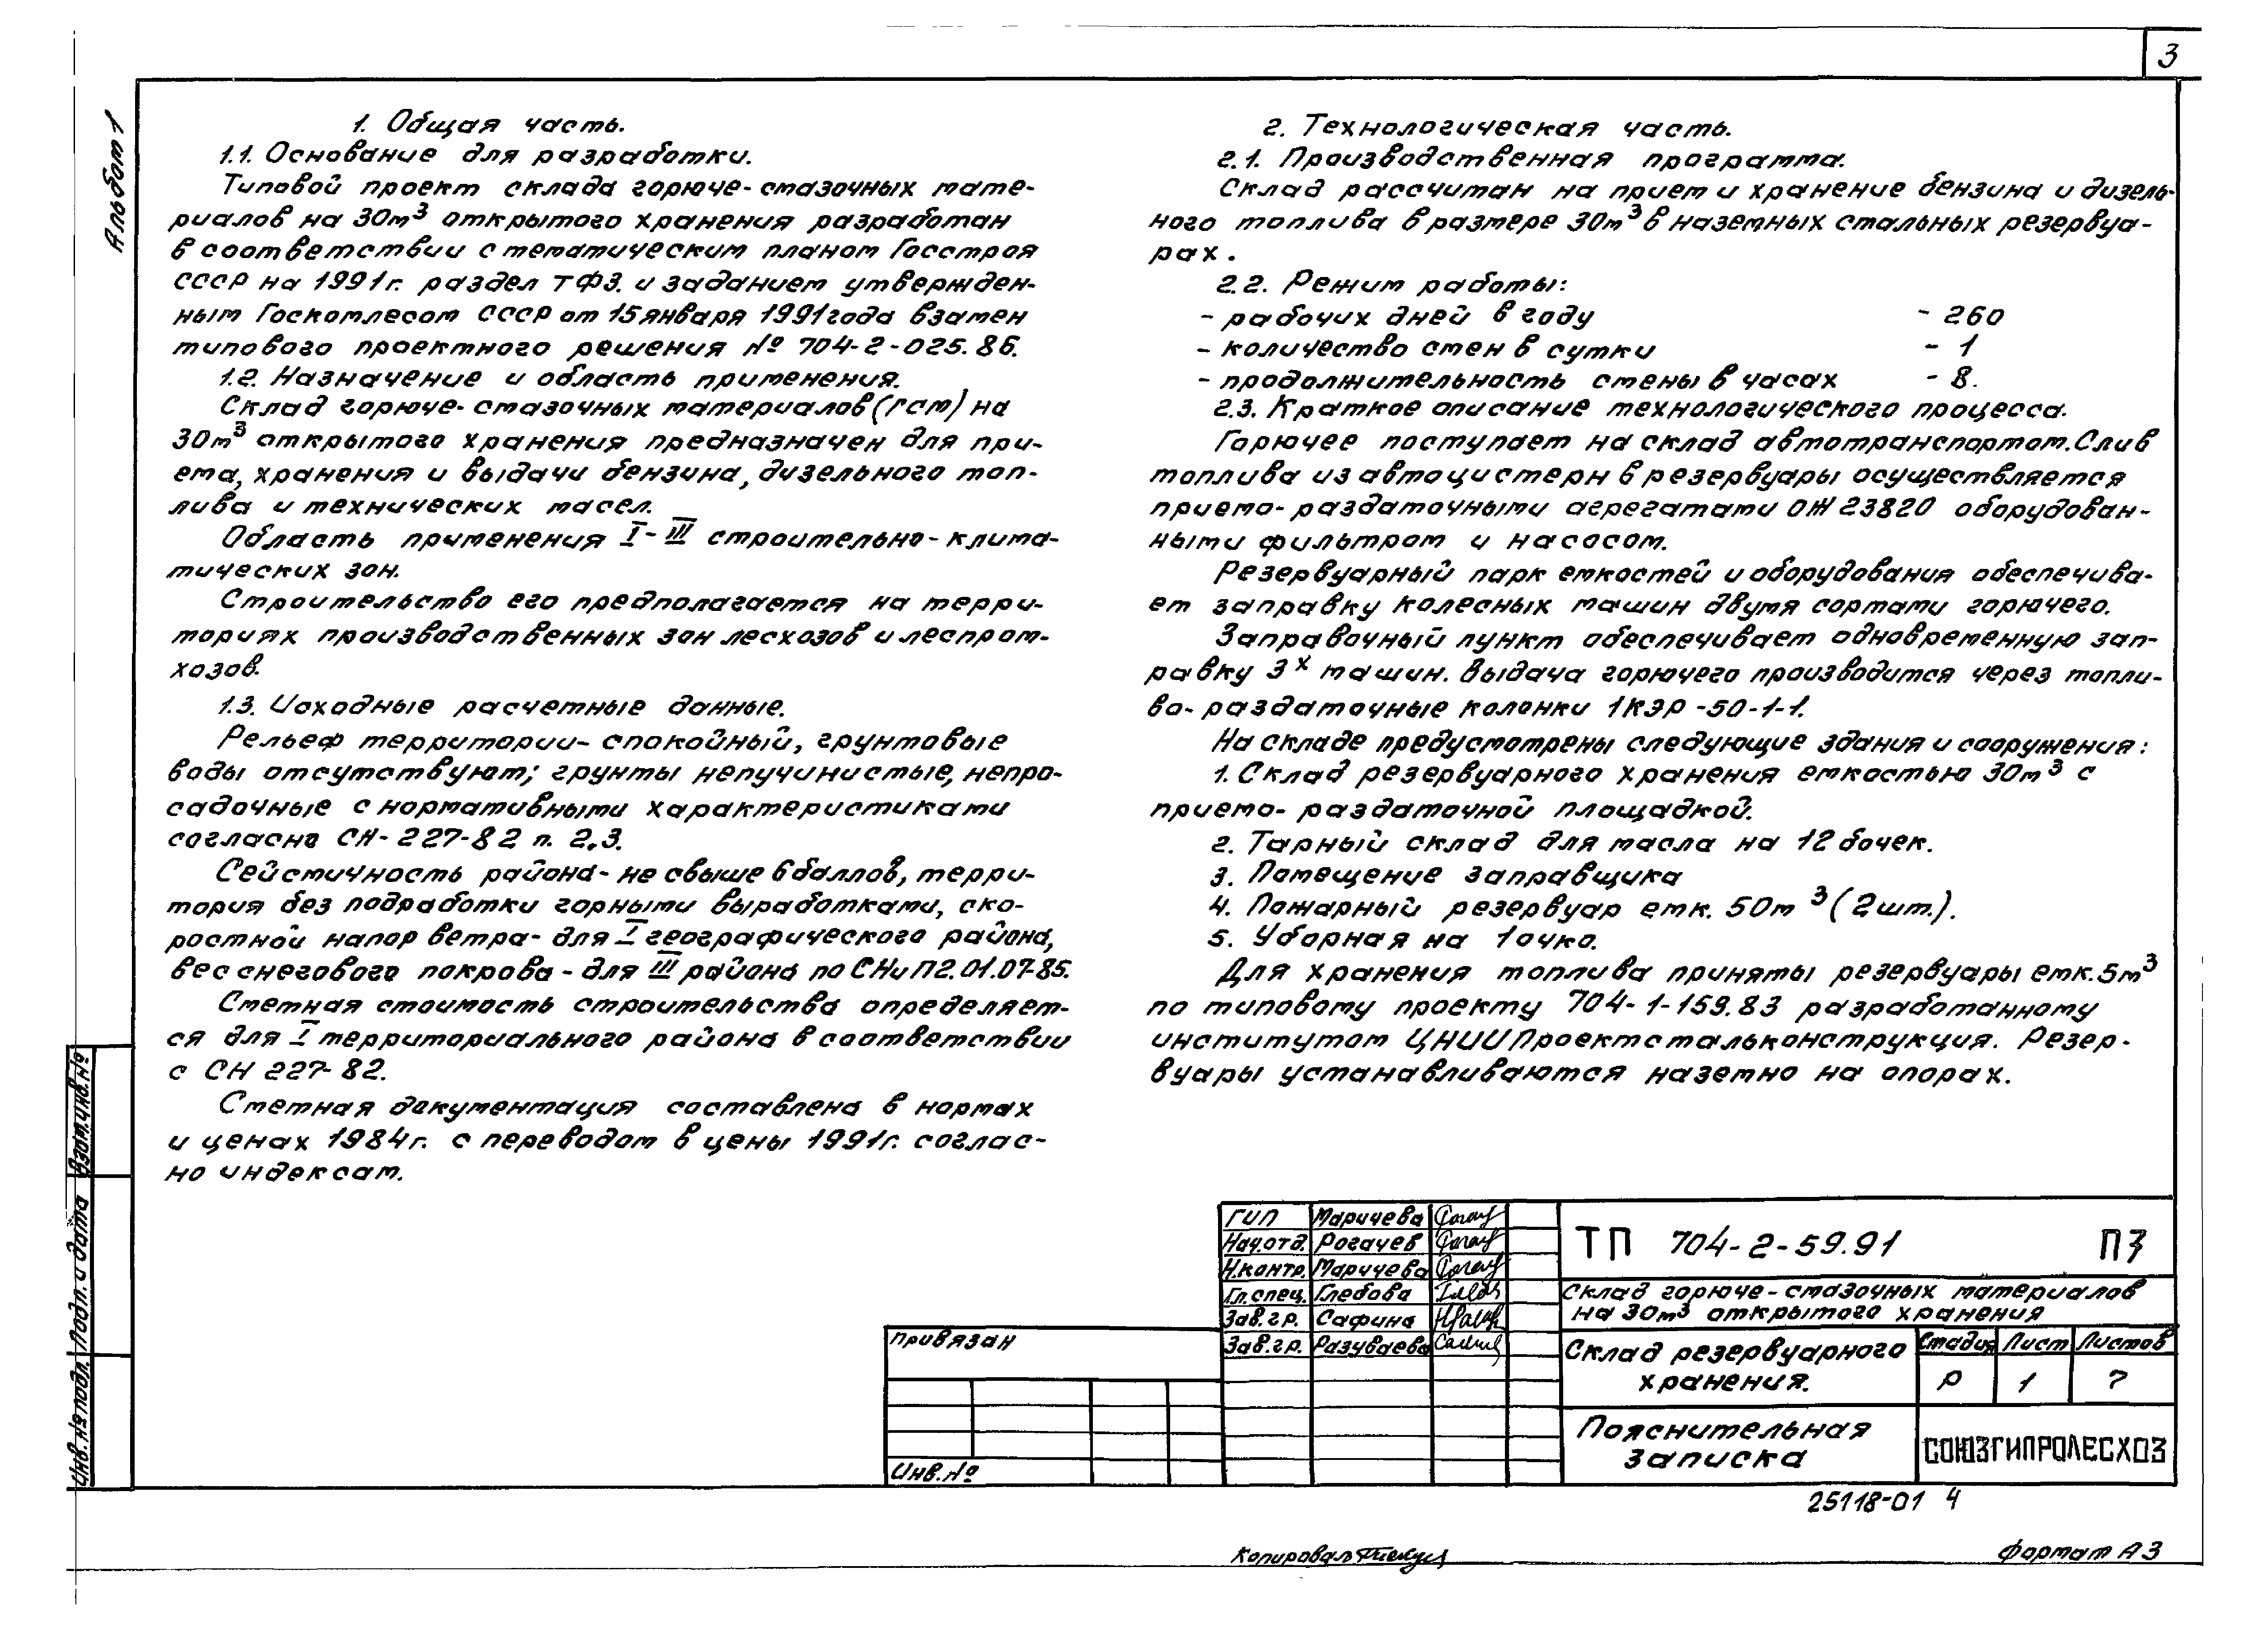 3
Альбом 1
1. Общая часть.
1.1. Основание для разработки.
Типовой проект склада горюче-смазочных мате-
риалов на 30м³ открытого хранения разработан
в соответствии с тематическим планом Госстроя
СССР на 1991г. раздел Т Ф3. и заданием утвержден-
ным Госкомлесом СССР от 15 января 1991 года взамен
типового проектного решения № 704-2-025.86.
1.2. Назначение и область применения.
Склад горюче-смазочных материалов (гсм) на
30м³ открытого хранения предназначен для при-
ема, хранения и выдачи бензина, дизельного топ-
лива и технических масел.
Область применения I-III строительно-клима-
тических зон.
Строительство его предполагается на терри-
ториях производственных зон лесхозов и леспром-
хозов.
1.3. Исходные расчетные данные.
Рельеф территории - спокойный, грунтовые
воды отсутствуют; грунты непучинистые, непро-
садочные с нормативными характеристиками
согласно СН-227-82 п. 2.3.
Сейсмичность района - не свыше 6 баллов, терри-
тория без подработки горными выработками, ско-
ростной напор ветра - для I географического района,
вес снегового покрова - для III района по СНиП2.01.07-85.
Сметная стоимость строительства определяет-
ся для I территориального района в соответствии
с СН 227-82.
Сметная документация составлена в нормах
и ценах 1984г. с переводом в цены 1991г. соглас-
но индексам.
2. Технологическая часть.
2.1. Производственная программа.
Склад рассчитан на прием и хранение бензина и дизель-
ного топлива в размере 30м³ в наземных стальных резервуа-
рах.
2.2. Режим работы:
- рабочих дней в году - 260
- количество смен в сутки - 1
- продолжительность смены в часах - 8.
2.3. Краткое описание технологического процесса.
Горючее поступает на склад автотранспортом. Слив
топлива из автоцистерн в резервуары осуществляется
приемо-раздаточными агрегатами ОЖ 23820 оборудован-
ными фильтром и насосом.
Резервуарный парк емкостей и оборудования обеспечива-
ет заправку колесных машин двумя сортами горючего.
Заправочный пункт обеспечивает одновременную зап-
равку 3х машин. Выдача горючего производится через топли-
во-раздаточные колонки 1КЭР-50-1-1.
На складе предусмотрены следующие здания и сооружения:
1. Склад резервуарного хранения емкостью 30м³ с
приемо-раздаточной площадкой.
2. Тарный склад для масла на 12 бочек.
3. Помещение заправщика
4. Пожарный резервуар емк. 50м³ (2шт.).
5. Уборная на 1очко.
Для хранения топлива приняты резервуары емк. 5м³
по типовому проекту 704-1-159.83 разработанному
институтом ЦНИИПроектстальконструкция. Резер-
вуары устанавливаются наземно на опорах.
Взам.инв.№
Подп. и дата
Инв.№ подл.
Привязан
Инв.№
ГИП Маричева
Нач.отд. Рогачев
Н.контр. Маричева
Гл.спец. Глебова
Зав.гр. Сафина
Зав.гр. Разуваева
ТП 704-2-59.91 ПЗ
Склад горюче-смазочных материалов
на 30м³ открытого хранения
Склад резервуарного
хранения.
Стадия Лист Листов
Р 1 7
Пояснительная
записка
СОЮЗГИПРОЛЕСХОЗ
25118-01 4
Копировал
Формат А3